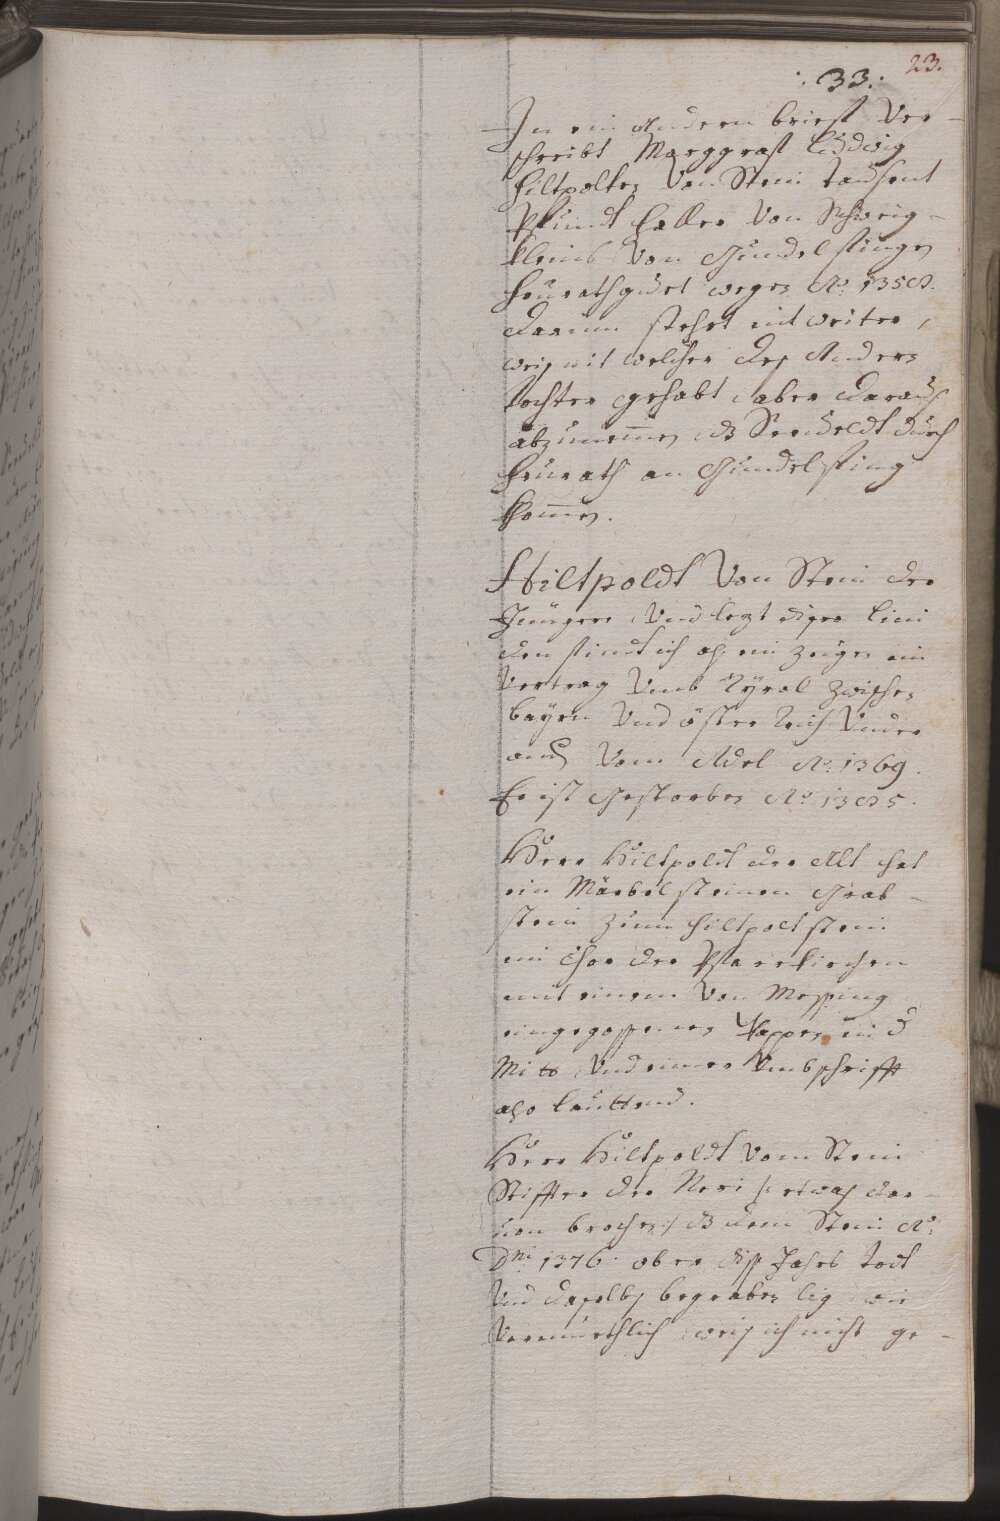 23.
:33:
In ein Andern brieff Ver-
schreibt Marggraf Ludwig
Hiltpolten Von Stein tausent
Pfundt Haller Von Schweig-
kleins Von Gundelfingen
heurathguet wegen Aō 1358.
Darinn stehet nit weiter,
weis nit welcher des Anders
tochter gehabt, aber daraus
abzunemen dz Seefeldt durch
heurath an Gundelfing
khomen.
Hiltpoldt Von Stein der
Jünger, Vnd letzt diser lini
den findt ich als ein zeugen im
Vertrag Vmb Tyrol zwischen
bayrn Vnd österreich Vnder
and. Vom Adel Aō 1369.
Er ist Gestorben Aō 1385.
Herr Hiltpoldt der Alt hat
ein Märbelsteinen Grab-
stein zum Hiltpoltstein
im Chor der Pfarrkirchen
mit einem Von Messing
eingegossenen Wappen in d
Mite, Vnd einer Vmbschrifft
also lauttend.
Herr Hiltpoldt Vom Stein
Stiffter der Neri /: etwas dar-
von brochen :/ dz dem Stein Aō
Dni 1376. ob er diss Jahrs todt
Vnd daselbs begraben lig, wie
Vermuethlich, weis ich nicht ge-